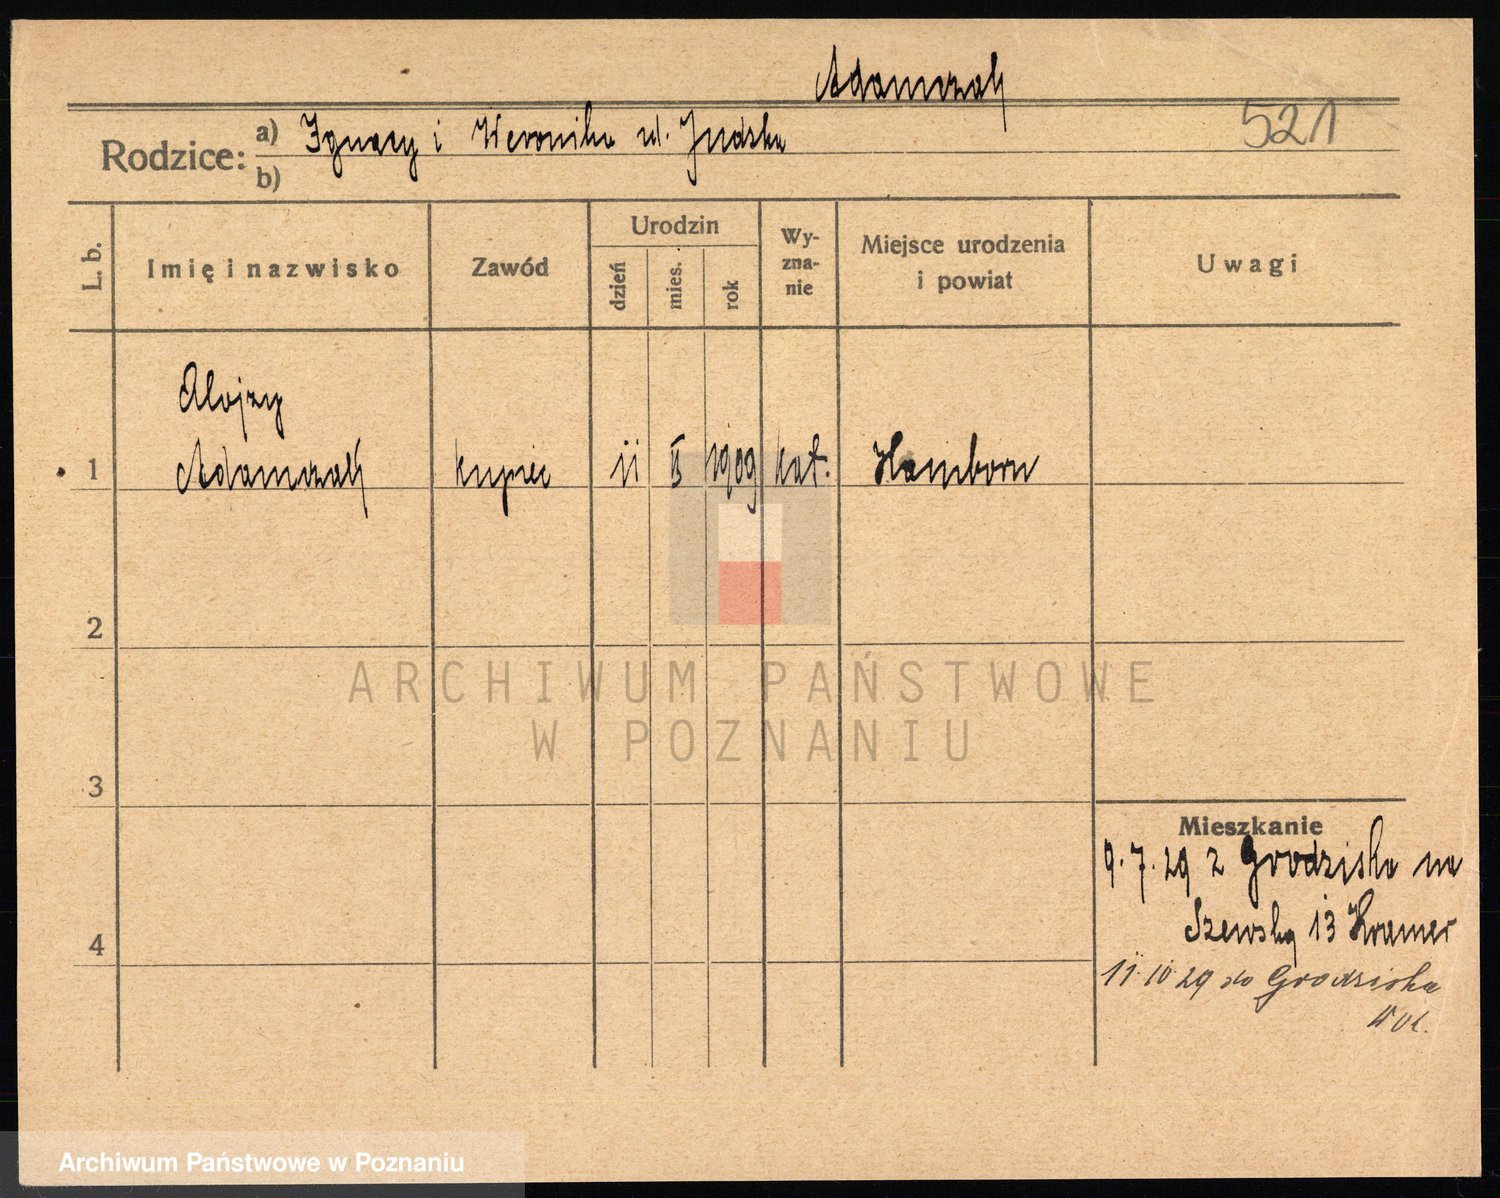 Adamczak
521
Rodzice: a) Ignacy i Weronika
b)
L. b.
Imię i nazwisko
Zawód
Urodzin
dzień
mies.
rok
Wy-
zna-
nie
Miejsce urodzenia
i powiat
Uwagi
Alojzy
1 Adamczak kupiec 11 1909 kat. Hamborn
2
3
4
Mieszkanie
9.7.29 z Grodziska na
Szewską 13 Kramer
11.10.29 do Grodziska
ARCHIWUM PAŃSTWOWE
W POZNANIU
Archiwum Państwowe w Poznaniu